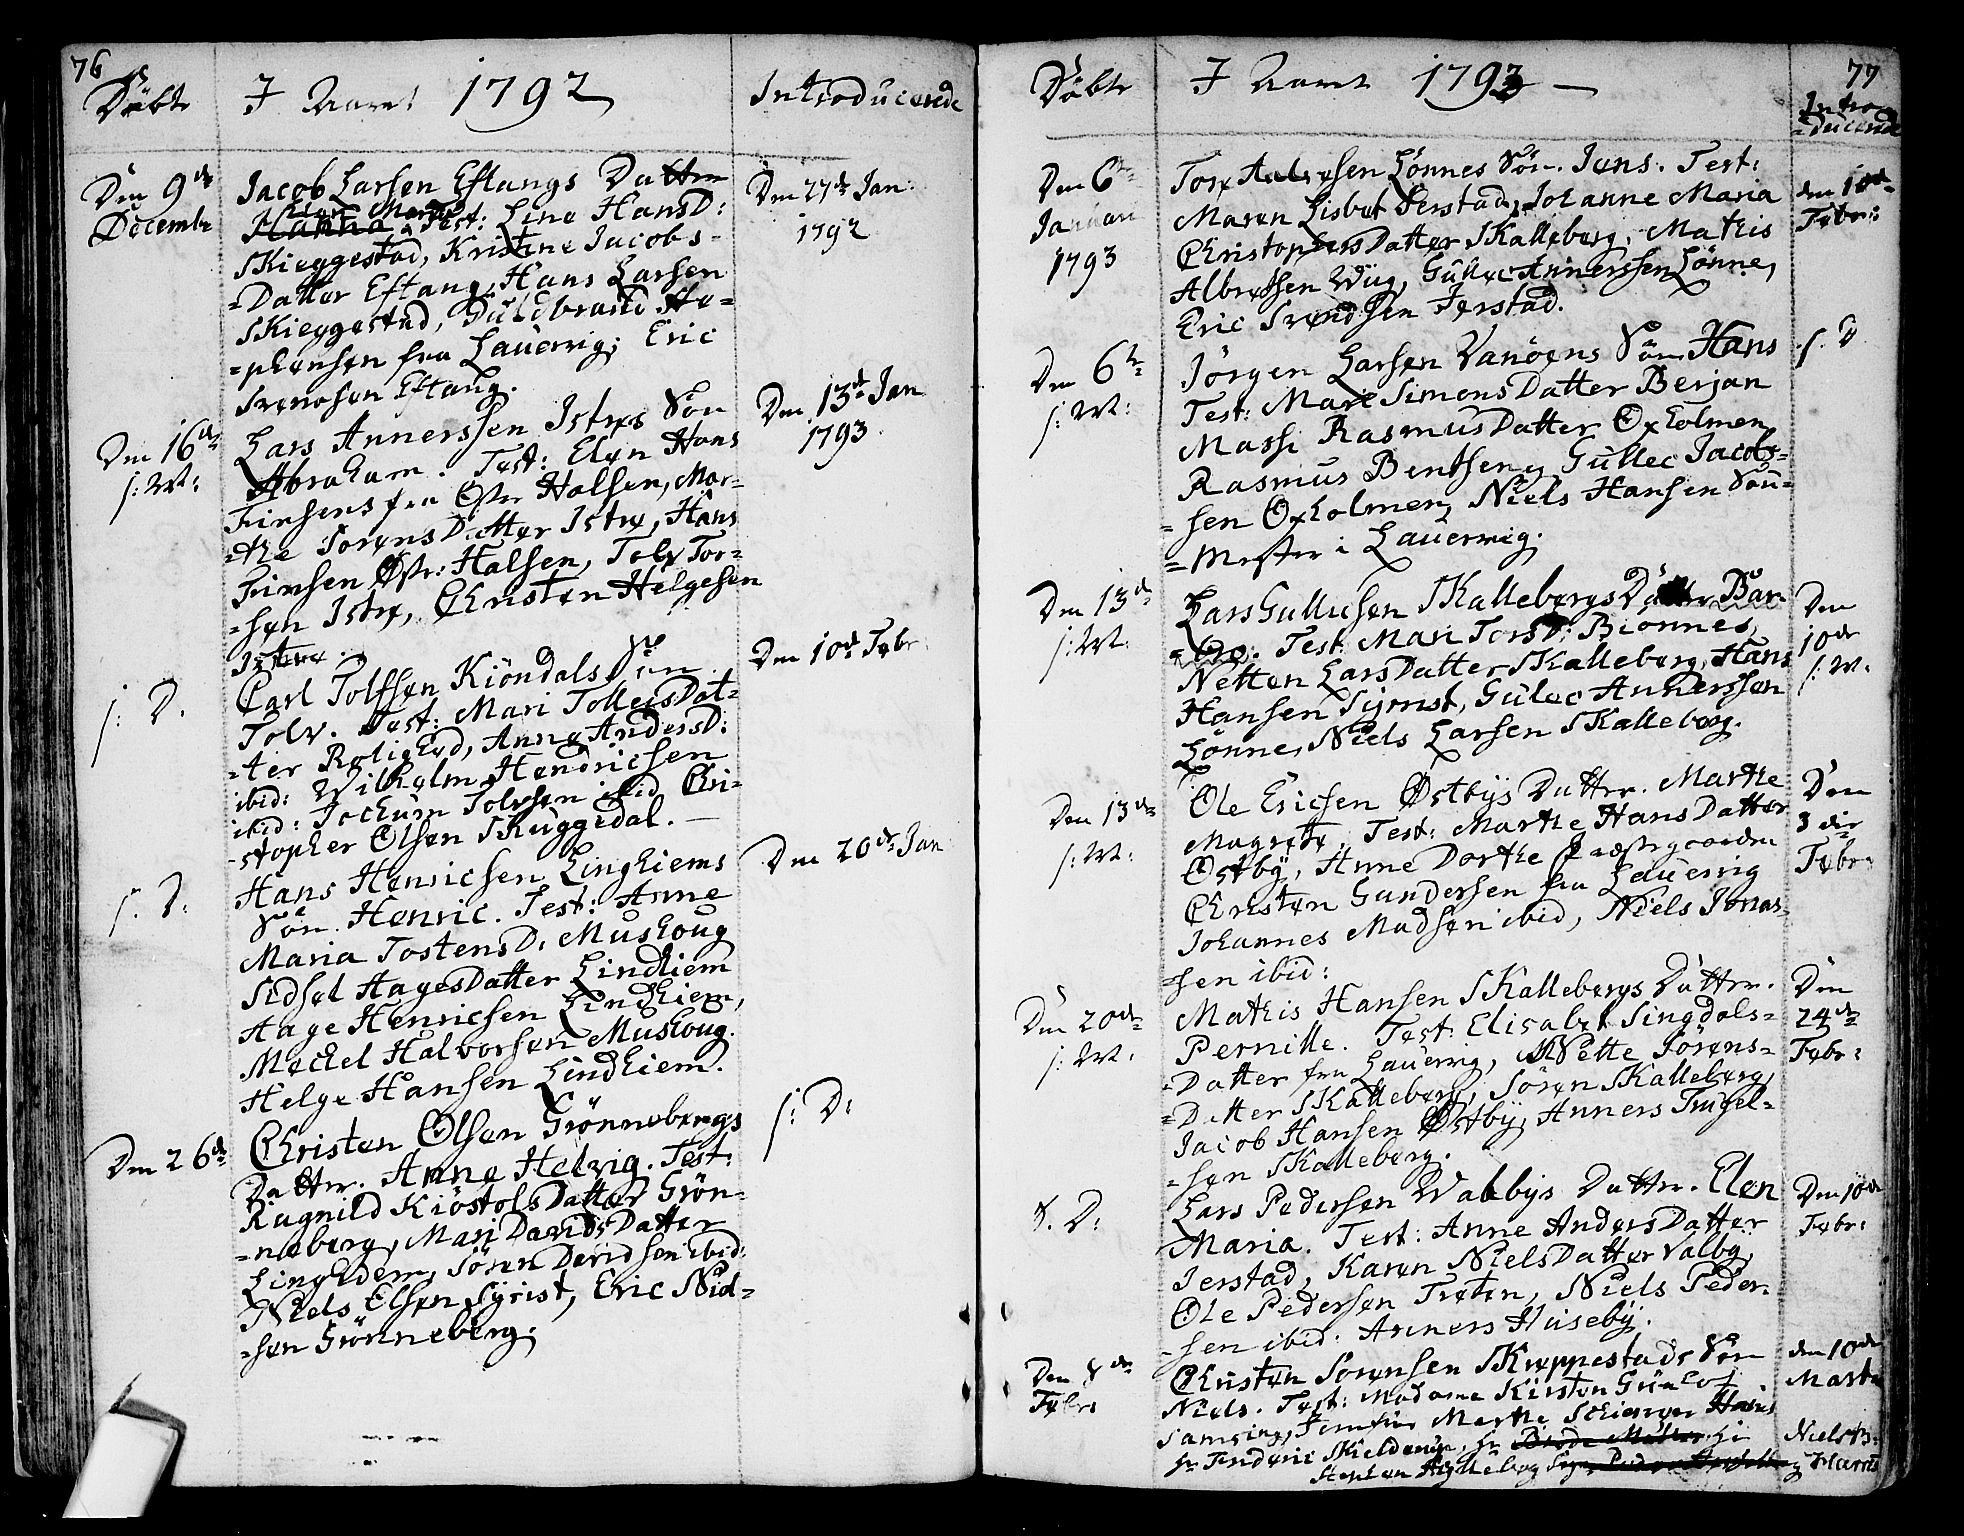 76
Döbte
I Aaret 1792
Introducerede
Den 9de
Decembr
Jacob Larsen Eftangs Datter
Maria Test: Line HansD:
Skieggestad, Kristine Jacobs-
-Datter Eftang, Hans Larsen
Skieggestad, Guldbrand Ste-
-phensen fra Lauervig; Eric
Svendsen Eftang.
Den 27de Jan:
1792
Den 16de
s: M:
Lars Annerssen Istres Sön
Abraham. Test: Elen Hans
fra Østr Halsen, Mar-
-the SörensDatter Istre, Hans
Østr: Halsen, Tolv Tor-
-sen Istre, Christen Helgesen
Istre.
Den 13de Jan
1793
s: D.
Carl Tolfsen Kiöndals Sön
Tolv. Test: Mari TollefsDat-
-ter Rolighed, Anne AndersD:
ibid: Wilhelm Hendricsen
ibid: Jochum Tolvsen ibid Chri-
-stopher Olsen Skuggedal.
Den 10de Febr
s: D:
Hans Henricsen Linghiems
Sön. Henric. Test: Anne
Maria TostensD: Muskoug
Sidsel HagesDatter Lindhiem
Aage Henricsen Lindhiem,
Mechel Halvorsen Muskoug.
Helge Hansen Lindhiem.
Den 20de Jan
Den 26de
Christen Olsen Grönnebergs
Datter. Anne Helvig. Test:
Ragnild KiöstolsDatter Grön-
-neberg, Mari DavidsDatter
Sören Davidsen ibid:
Niels Elsen Syrist, Eric Nid-
-sen Grönneberg.
s: D:
77
Döbte
I Aaret 1793
Intro-
-ducerede
Den 6te
Januari
1793
Tore Lönnes Sön. Jens. Test:
Maren Lisbet Jerstad, Johanne Maria
ChristophersDatter Skalleberg, Mathis
Albretsen Wüg, Gullec Annerssen Lönne,
Eric Svendsen Jerstad.
den 10de
Febr:
Den 6te
s: M:
Jörgen Larsen Vanöens Sön Hans
Test: Mari SimonsDatter Berjan
Massi RasmusDatter Oxholmen
Rasmus Bentsen, Gullec Jacob-
-sen Oxholmen, Niels Hansen
-Mester i Lauervig.
s. D
Den 13de
s: M:
Lars Gullicsen Skallebergs Datter Bar-
-bro. Test: Mari TorsD: Biönnes,
Netten LarsDatter Skalleberg, Hans
Hansen Gulec Annerssen
Lönne, Niels Larsen Skalleberg.
Den
10de
s: M.
Den 13de
s: M:
Ole Ericsen Østbÿs Datter. Marthe
Magrete, Test: Marthe HansDatter
Østbÿ, Anne Dorthe Præstegaarden
Christen Gundersen fra Lauervig
Johannes Madsen ibid, Niels Jonas-
-sen ibid:
Den
3die
Febr:
Den 20de
s: M:
Mathis Hansen Skallebergs Datter.
Pernille. Test: Elisabet Singdals-
-Datter fra Lauervig, Nette Jörens-
-Datter Skalleberg, Sören Skalleberg,
Jacob Hansen Østbÿ, Anners Trugel-
-sen Skalleberg.
Den
24de
Febr:
s. D:
Lars Pedersen Walbÿs Datter. Elen
Maria. Test: Anne AndersDatter
Jerstad, Karen NielsDatter Valbÿ,
Ole Pedersen Treten, Niels Peder-
-sen ibid: Anners Huusebÿ.
Den 10de
Febr:
Den 8de
Febr:
Christen Sörensen Skreppestads Sön
Niels. Test: Madame Kirsten
Samsing, Jomfrue Marthe
Hr Frideric Skieldrup, Hr
Stephen
den 10de
Marti
Niels